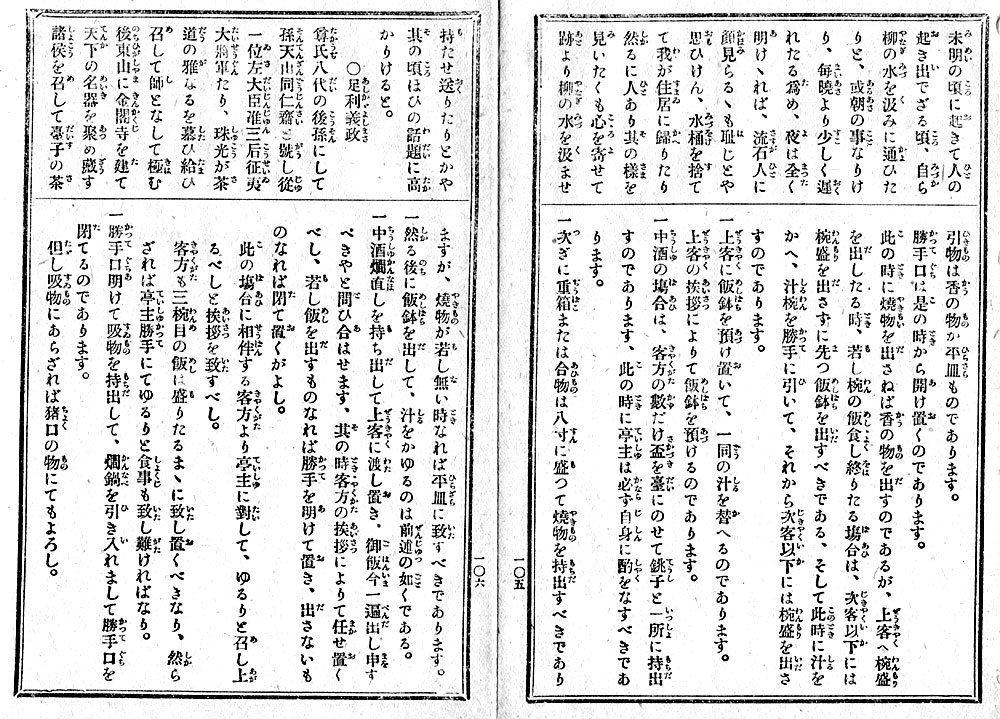 未明の頃に起きて人の
起き出でざる頃、自ら
柳の水を汲みに通ひた
りと、或朝の事なりけ
り、毎曉より少しく遲
れたる爲め、夜は全く
明けヽれば、流石人に
顔見らるヽも耻じとや
思ひけん、水桶を捨て
て我が住居に歸りたり
然るに人あり其の樣を
見いたくも心を寄せて
跡より柳の水を汲ませ
引物は香の物か平皿ものであります。
勝手口は是の時から開け置くのであります。
此の時に燒物を出さねば香の物を出すのであるが、上客へ椀盛
を出したる時、若し椀の飯食し終りたる塲合は、次客以下には
椀盛を出さずに先つ飯鉢を出すべきである、そして此時に汁を
かへ、汁椀を勝手に引いて、それから次客以下には椀盛を出さ
すのであります。
一上客に飯鉢を預け置いて、一同の汁を替へるのであります。
上客の挨拶によりて飯鉢を預けるのであります。
一中酒の塲合は、客方の數だけ盃を臺にのせて銚子と一所に持出
すのであります、此の時に亭主は必ず自身に酌をなすべきであ
ります。
一次ぎに重箱または合物は八寸に盛つて燒物を持出すべきであり
一〇五
持たせ送りたりとかや
其の頃はひの話題に高
かりけると。
〇足利義政
尊氏八代の後孫にして
孫天山同仁齋と號し從
一位左大臣准三后征夷
大將軍たり、珠光が茶
道の雅なるを慕ひ給ひ
召して師となして極む
後東山に金閣寺を建て
天下の名器を聚め藏す
諸侯を召して臺子の茶
ますが、燒物が若し無い時なれば平皿に致すべきであります。
一然る後に飯鉢を出して、汁をかゆるのは前述の如くである。
一中酒燗直しを持ち出して上客に渡し置き、御飯今一遍出し申す
べきやと問ひ合はせます、其の時客方の挨拶によりて任せ置く
べし、若し飯を出すものなれば勝手を明けて置き、出さないも
のなれば閉て置くがよし。
此の塲合に相伴する客方より亭主に對して、ゆるりと召し上
るべしと挨拶を致すべし。
客方も三椀目の飯は盛りたるまヽに致し置くべきなり、然ら
ざれば亭主勝手にてゆるりと食事も致し難ければなり。
一勝手口明けて吸物を持出して、燗鍋を引き入れまして勝手口を
閉てるのであります。
但し吸物にあらざれば猪口の物にてもよろし。
一〇六